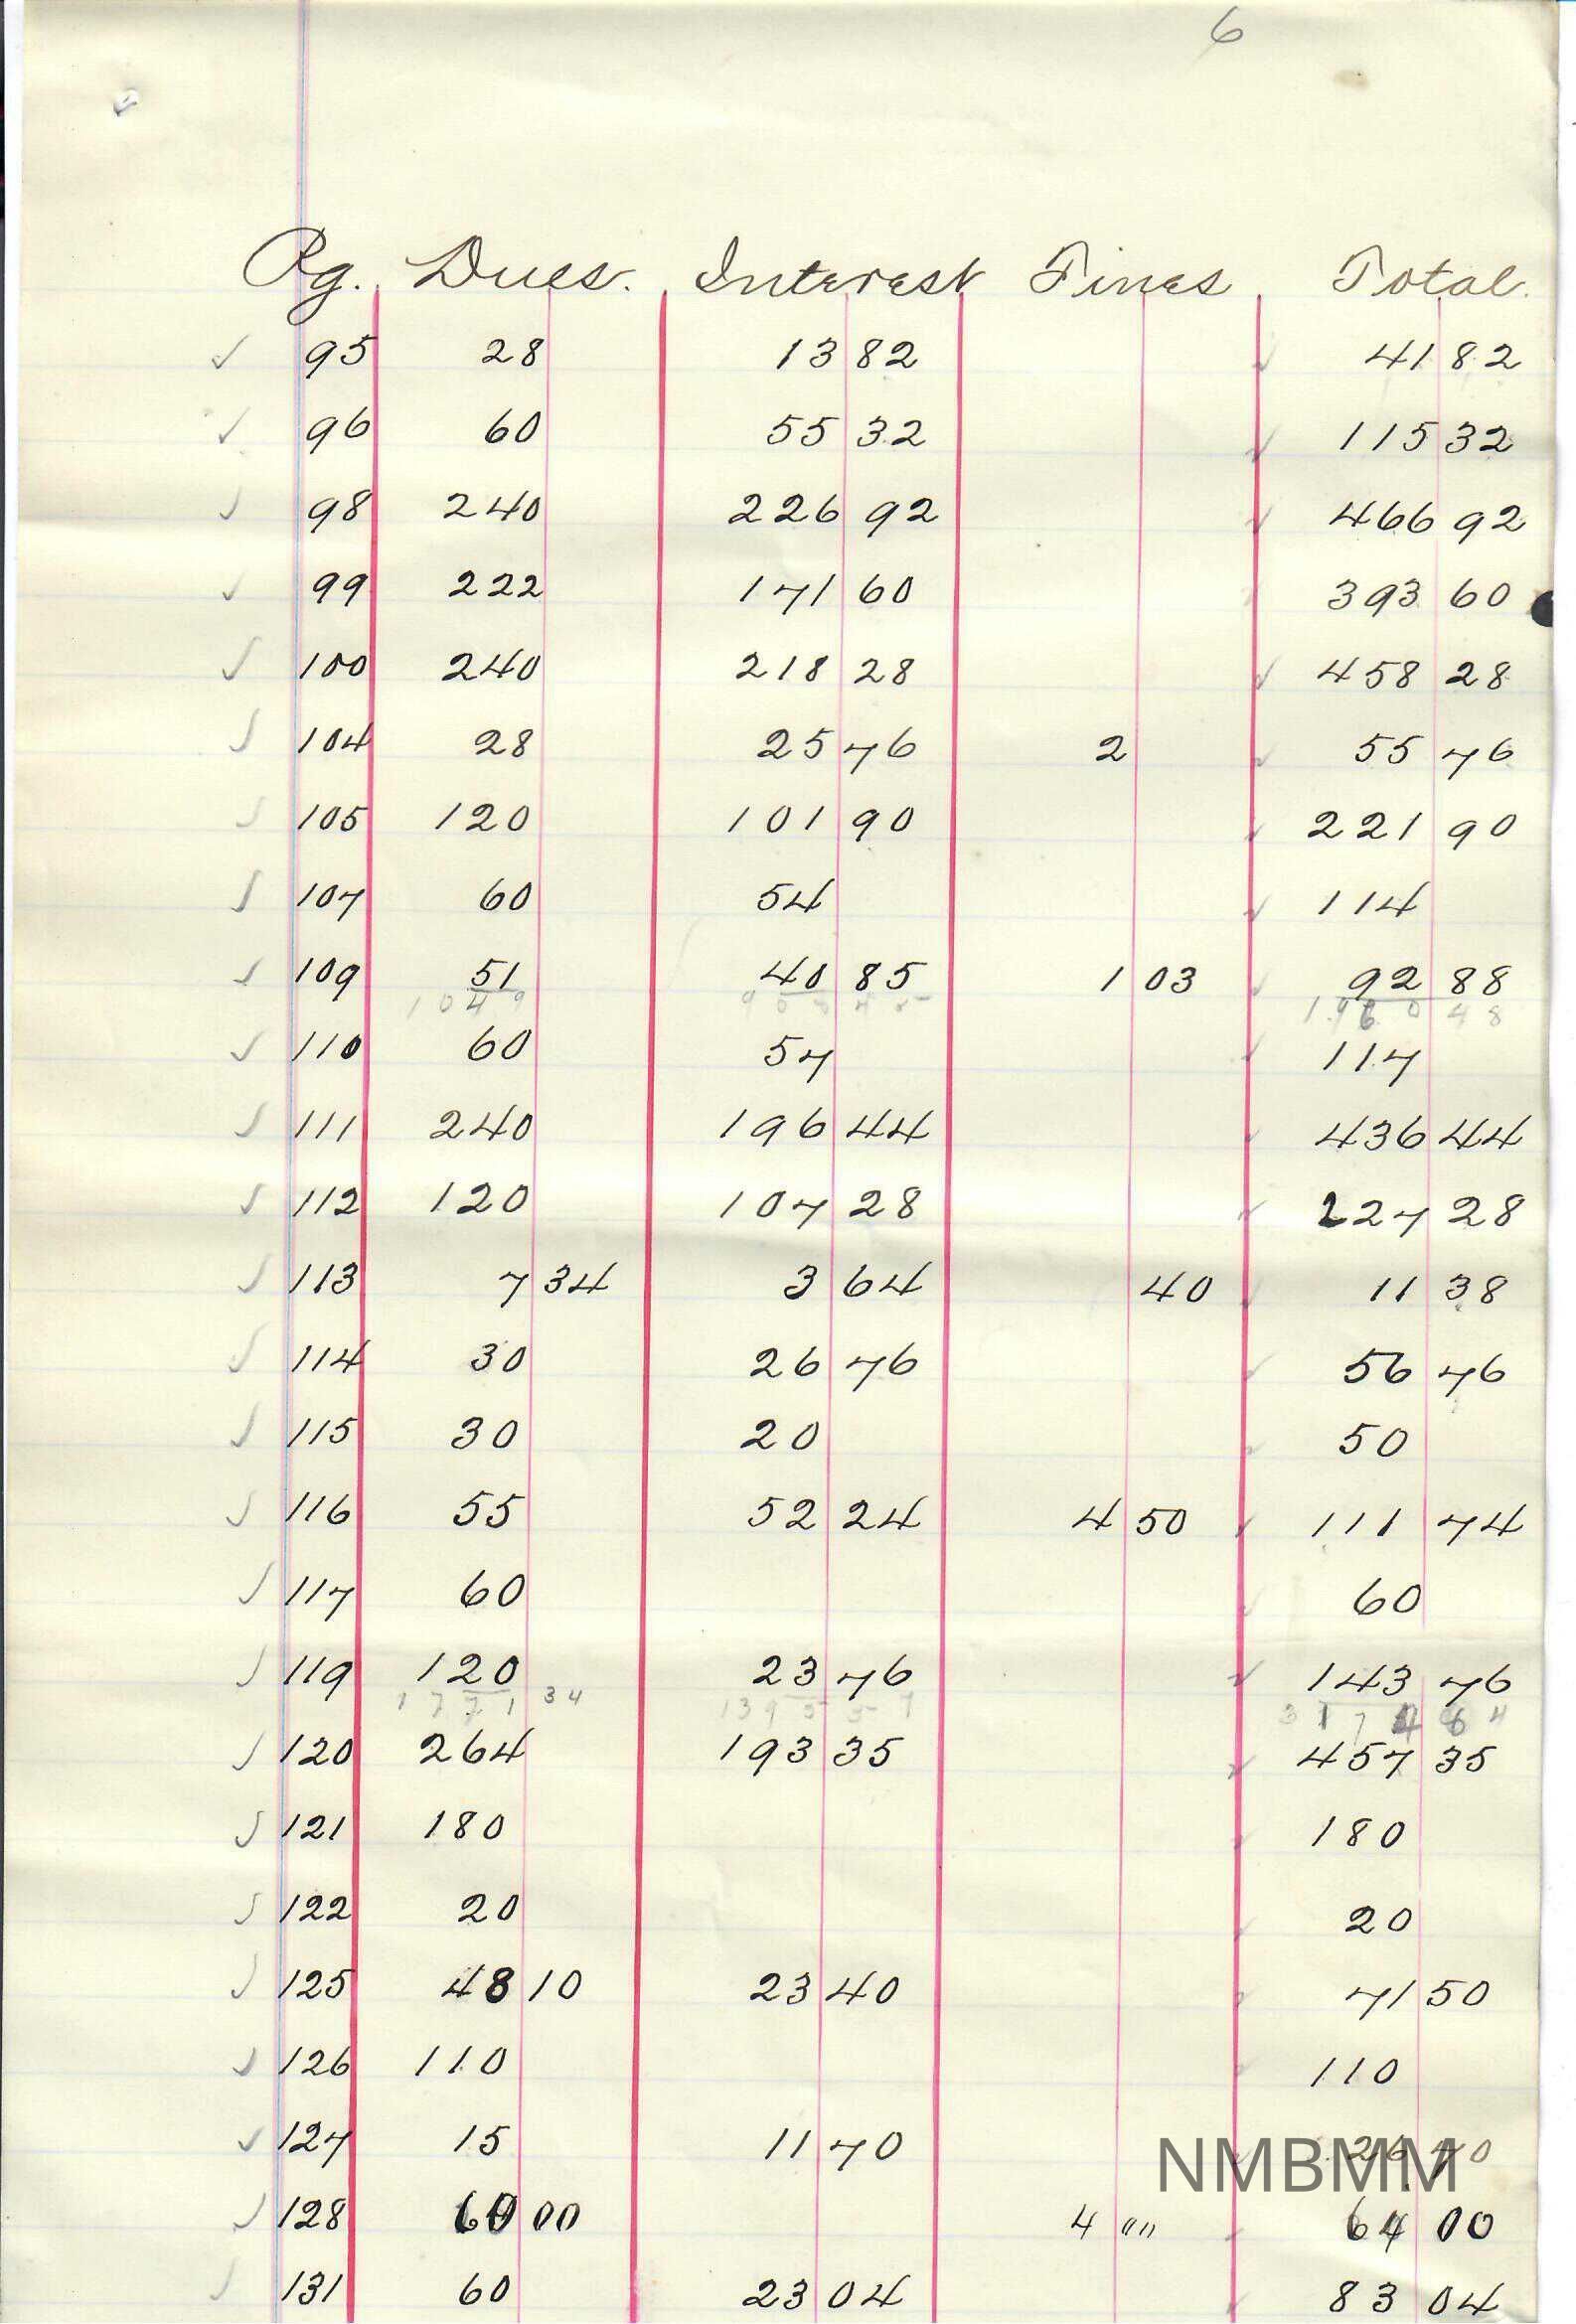 6
Pg. Dues. Interest Fines Total.
95 28 13 82 41 82
96 60 55 32 115 32
98 240 226 92 466 92
99 222 171 60 393 60
100 240 218 28 458 28
104 28 25 76 2 55 76
105 120 101 90 221 90
107 60 54 114
109 51 40 85 1 03 92 88
1049 908 45 1960 48
110 60 57 117
111 240 196 44 436 44
112 120 107 28 227 28
113 7 34 3 64 40 11 38
114 30 26 76 56 76
115 30 20 50
116 55 52 24 4 50 111 74
117 60 60
119 120 23 76 143 76
1771 34 1395 57 3174 64
120 264 193 35 457 35
121 180 180
122 20 20
125 48 10 23 40 71 50
126 110 110
127 15 11 70 26 70
NMBMM
128 60 00 4 "" 64 00
131 60 23 04 83 04